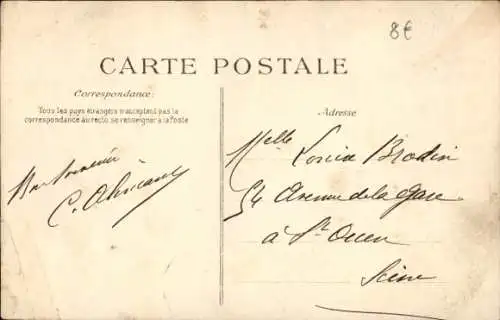 8€
CARTE POSTALE
Correspondance:
Tous les pays étrangers n'acceptant pas la
correspondance au recto, se renseigner à la Poste
Adresse
Bon souvenir
C.
Melle Brodin
54 Avenue de la Gare
à St Ouen
Seine